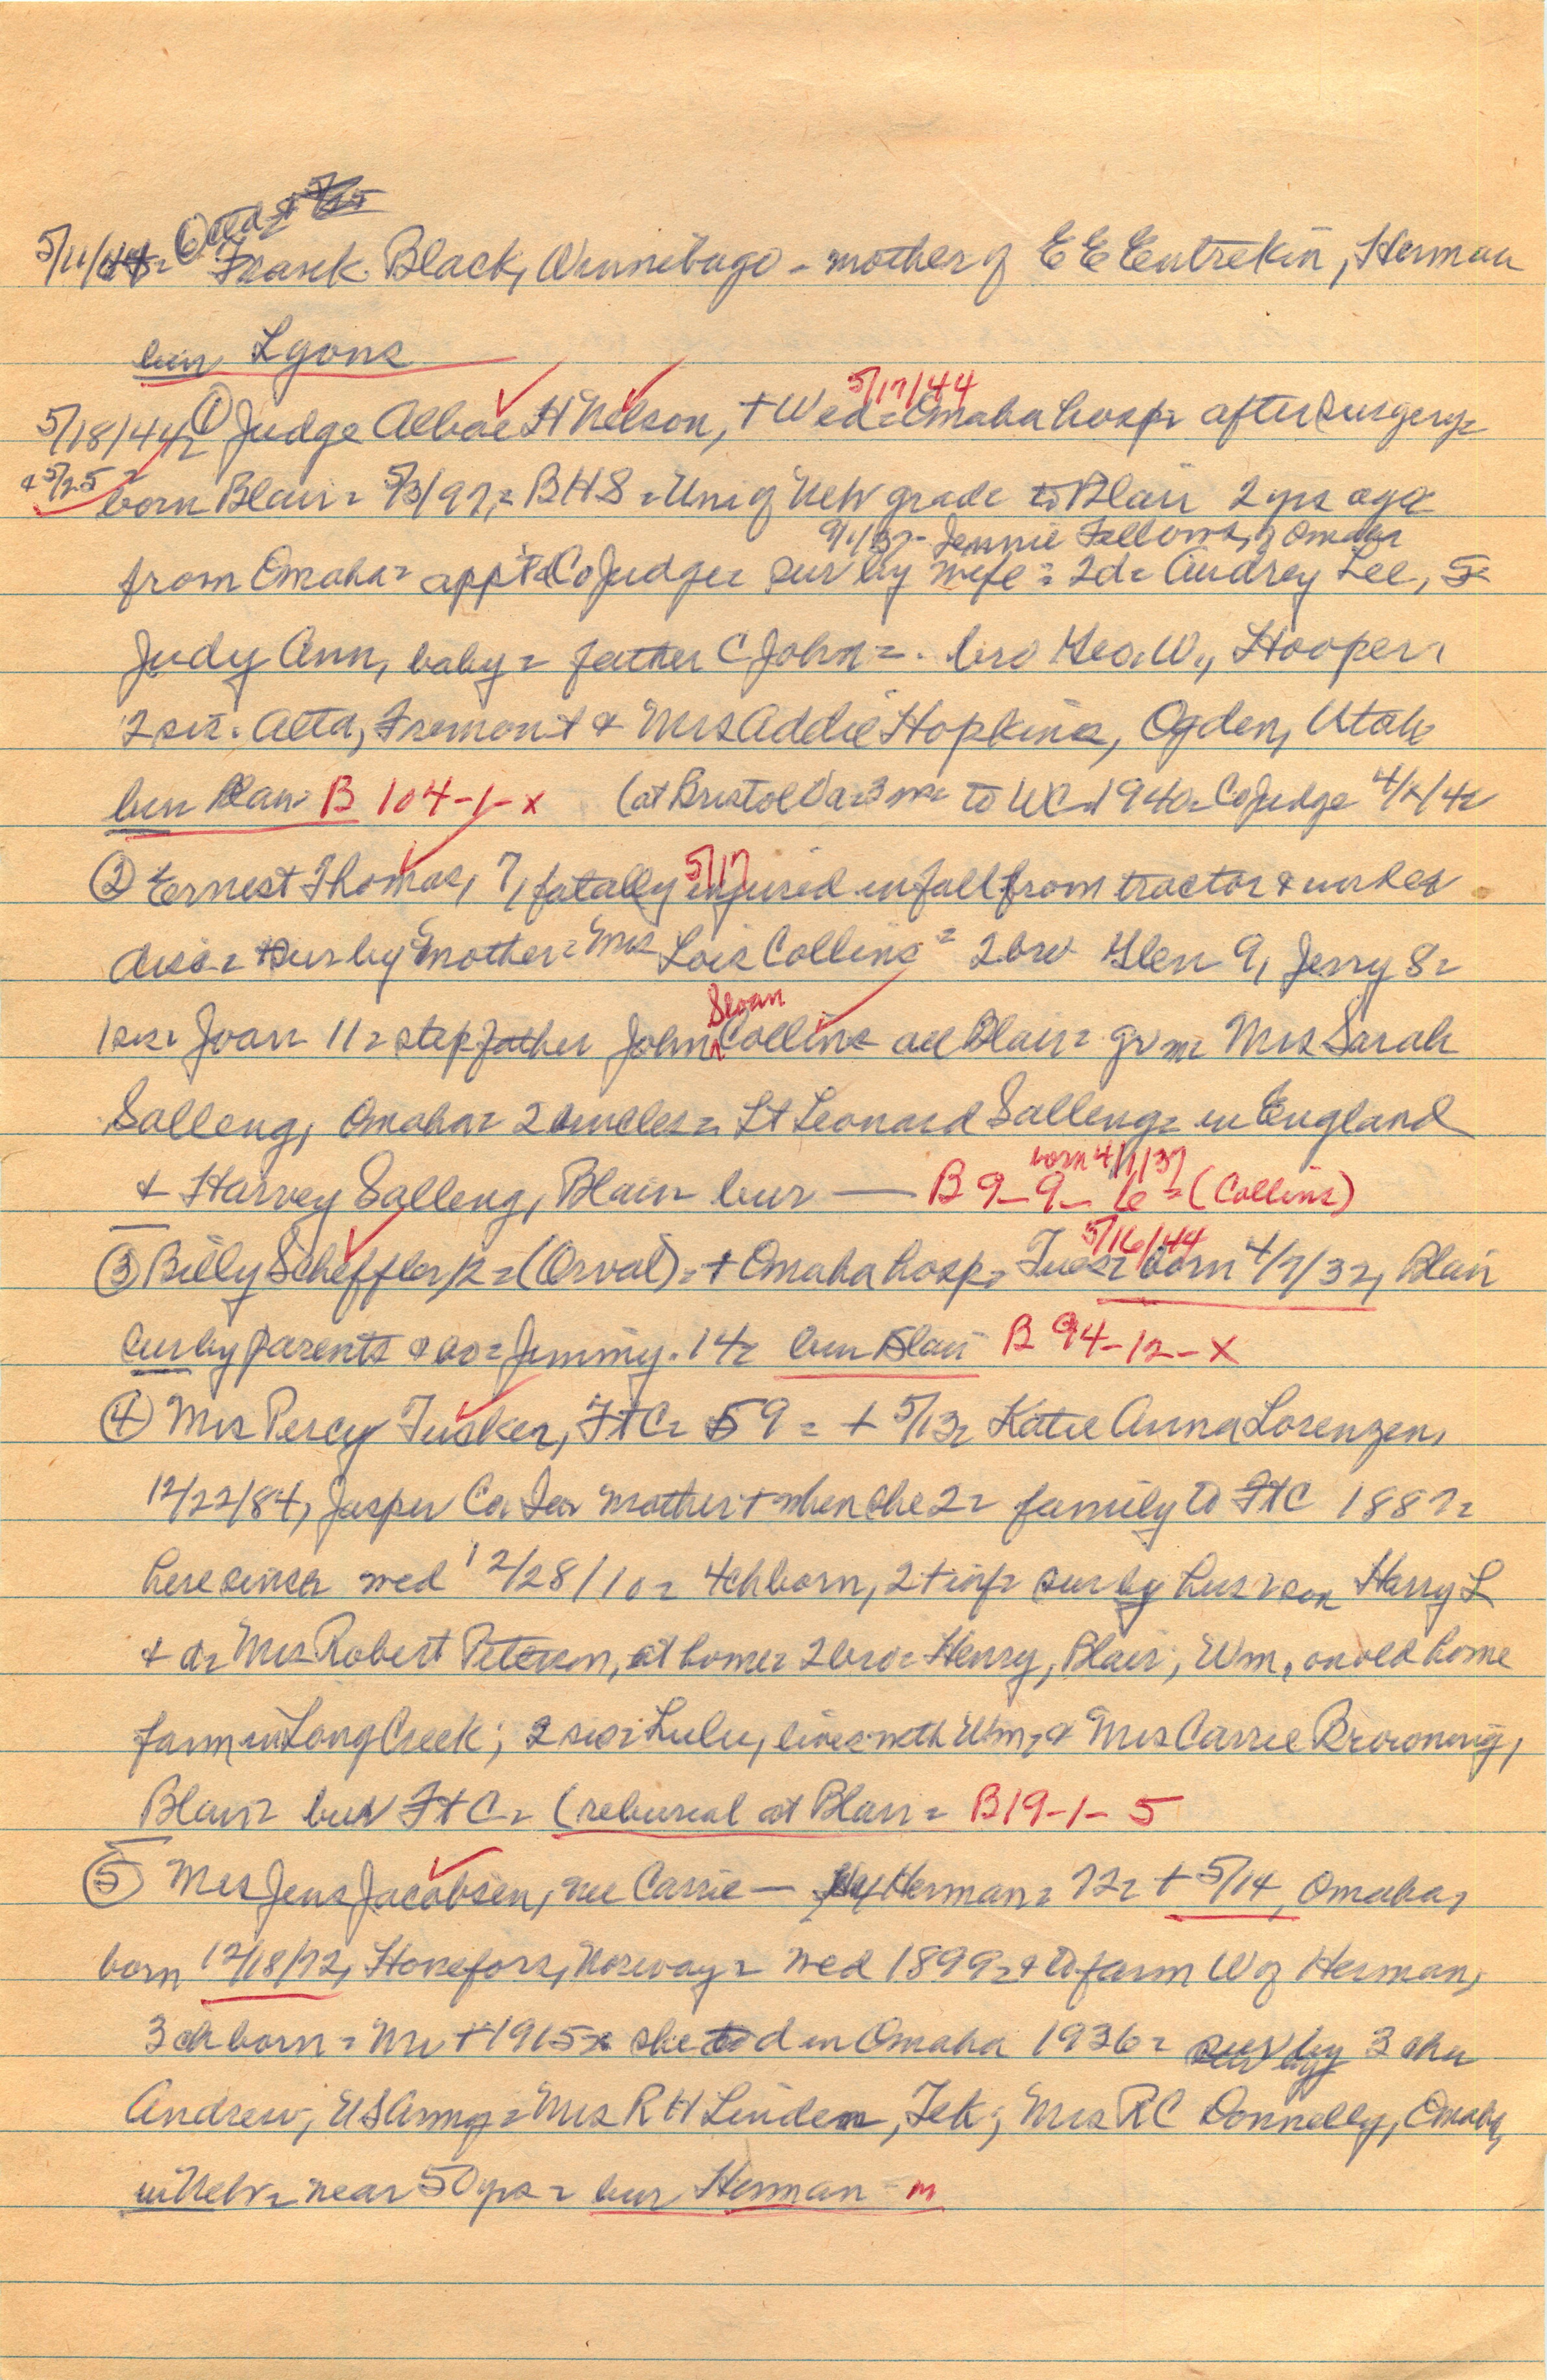 5/11/44= Frank Black, Winnebago - mother of E E Entrekin, Herman
bur Lyons
5/17/44
5/18/44= ① Judge Albae H Nelson, + Wed= Omaha hosp= after surgery=
& 5/25= born Blair= 5/3/97,= BHS = Uni of Neb grad= to Blair 2 yrs ago
9/1/37- Jennie Fellows, of Omaha
from Omaha= app't Co Judge= sur by wife= 2d= Audrey Lee, 5=
Judy Ann, baby= father C John=. bro Geo. W., Hooper=
2 sis. Alta, Fremont & Mrs Addie Hopkins, Ogden, Utah
bur Blair B 104-1-x (at Bristol Va= 3 m= to WC 1940= Co Judge
5/17
② Ernest Thomas, 7, fatally injured in fall from tractor & under
disc= sur by mother= Mrs Lois Collins= 2 bro Glen 9, Jerry 8=
Sloan
1 sis= Joan 11= stepfather John Collins all Blair= gr m= Mrs Sarah
Salleng, Omaha= 2 uncles= Lt Leonard Salleng= in England
born 4/1/37
& Harvey Salleng, Blair= bur — B 9-9-6= (Collins)
5/16/44
③ Billy Scheffler, = (Orval)= + Omaha hosp= Tues= born 4/7/32, Blair
sur by parents & bo= Jimmy. 14= bur Blair B 94-12-x
④ Mrs Percy Tusker, FtC= 59= + 5/13= Katie Anna Lorenzen,
12/22/84, Jasper Co Ia= mother + when she 2= family to FtC 1887=
here since= wed 12/28/10= 4 ch born, 2 + inf= sur by hus= son Harry L
& d= Mrs Robert Peterson, at home= 2 bro= Henry, Blair; Wm, on old home
farm in Long Creek; 2 sis= Lulu, lives with Wm, & Mrs Carrie Browning,
Blair= bur FtC= (reburial at Blair= B 19-1-5
⑤ Mrs Jens Jacobsen, nee Carrie — Herman= 72= + 5/14, Omaha,
born 12/18/72, Honefors, Norway= wed 1899= & to farm W of Herman,
3 ch born= Mr + 1915= she in Omaha 1936= sur by 3 ch=
Andrew, US Army= Mrs R H Linden, Tek; Mrs RC Donnelly, Omaha,
in Neb= near 50 yrs= bur Herman - m